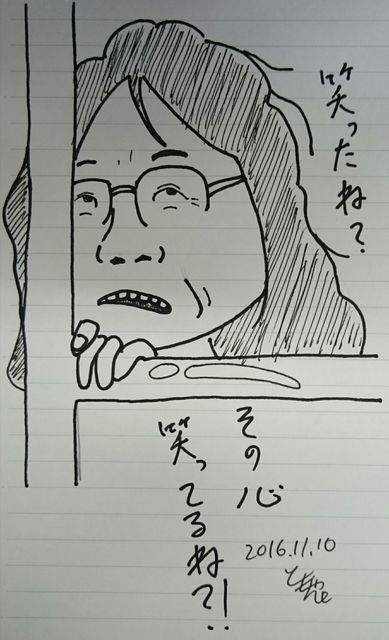 笑ったね?
その心
笑ってるね?!
2016.11.10